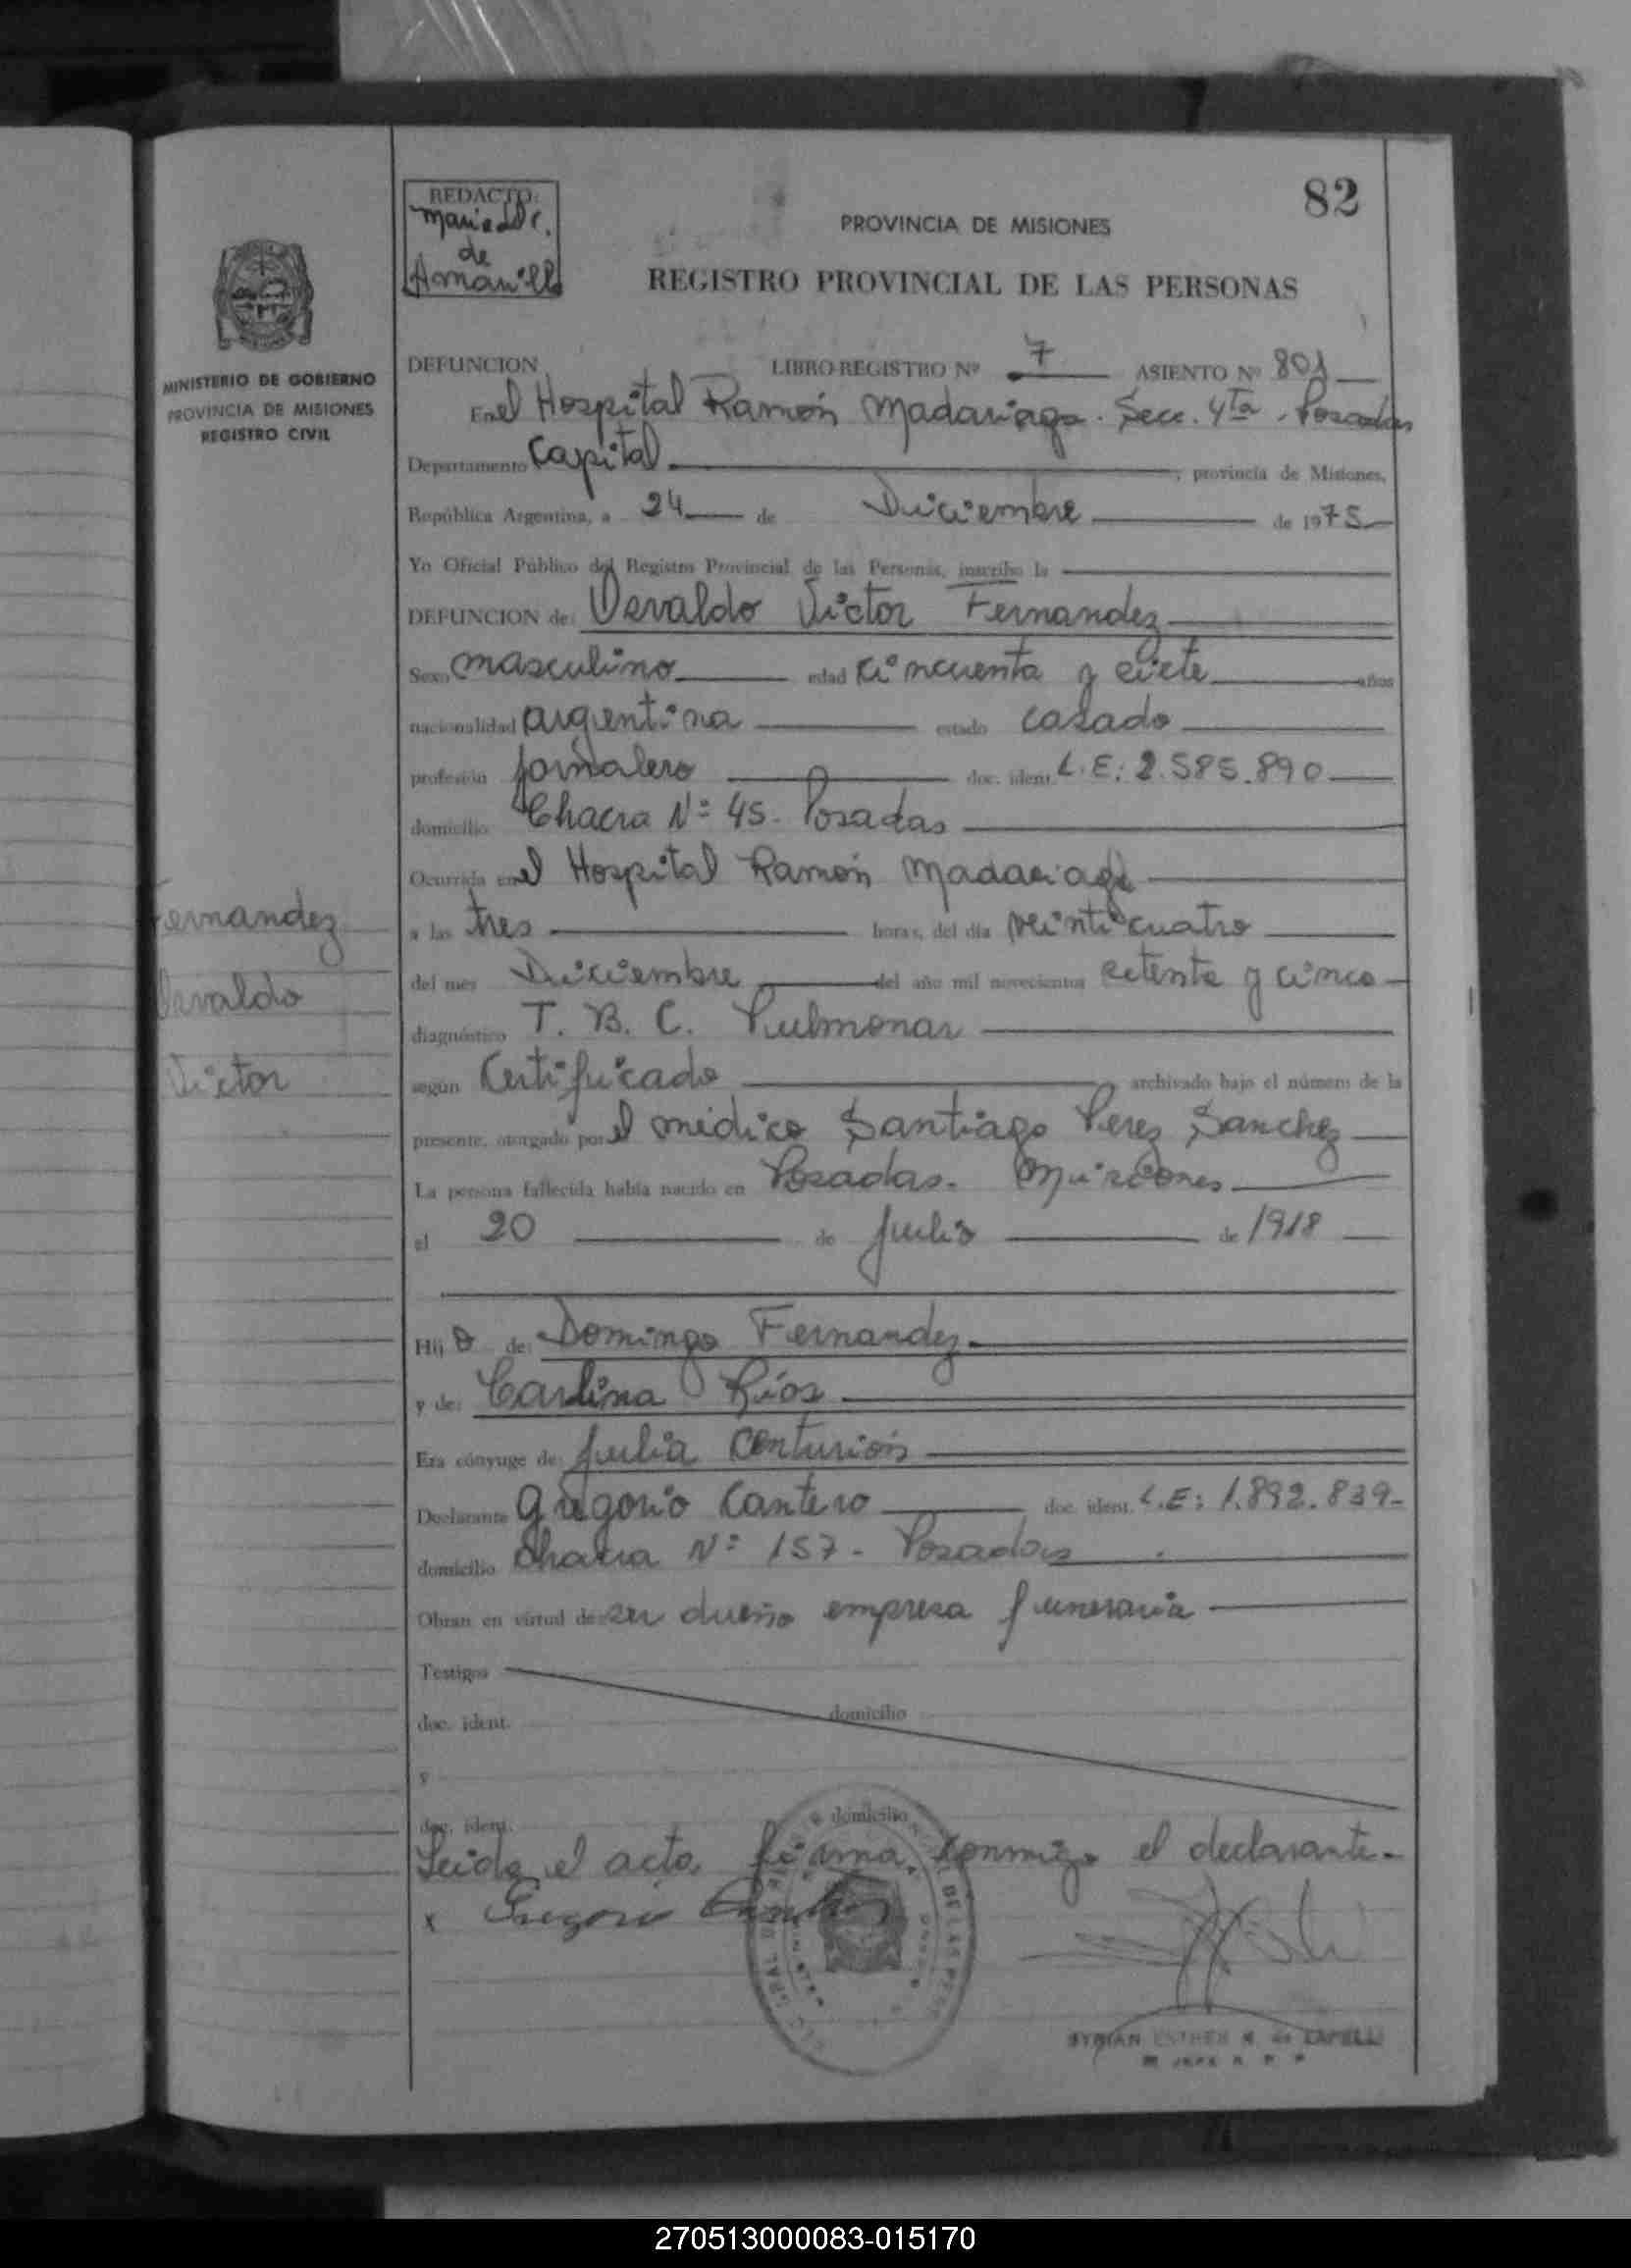 82
REDACTO:
Maria
de
PROVINCIA DE MISIONES
REGISTRO PROVINCIAL DE LAS PERSONAS
MINISTERIO DE GOBIERNO
PROVINCIA DE MISIONES
REGISTRO CIVIL
DEFUNCION LIBRO-REGISTRO Nº 7 ASIENTO Nº 801
En el Hospital Ramón Madariaga. Secc. 4ta. Posadas
Departamento Capital, provincia de Misiones,
República Argentina, a 24 de Diciembre de 1975
Yo Oficial Público del Registro Provincial de las Personas, inscribo la
DEFUNCION de: Osvaldo Victor Fernandez
Sexo masculino edad cincuenta y siete años
nacionalidad argentina estado casado
profesión jornalero doc. ident. L.E: 2.585.890
domicilio Chacra Nº 45. Posadas
Ocurrida en el Hospital Ramón Madariaga
a las tres horas, del día veinticuatro
del mes Diciembre del año mil novecientos setenta y cinco
diagnóstico T. B. C. Pulmonar
según Certificado archivado bajo el número de la
presente, otorgado por el médico Santiago Perez Sanchez
La persona fallecida había nacido en Posadas. Misiones
el 20 de Julio de 1918
Fernandez
Osvaldo
Victor
Hijo de: Domingo Fernandez
y de: Carlina Ríos
Era cónyuge de: Julia Centurión
Declarante Gregorio Cantero doc. ident. L.E: 1.892.839-
domicilio Chacra Nº 157. Posadas
Obran en virtud de ser dueño empresa funeraria
Testigos
doc. ident. domicilio
y
doc. ident. domicilio
Leida el acta firma conmigo el declarante.
x Gregorio Cantero
ESTHER
JEFE R P P
270513000083-015170